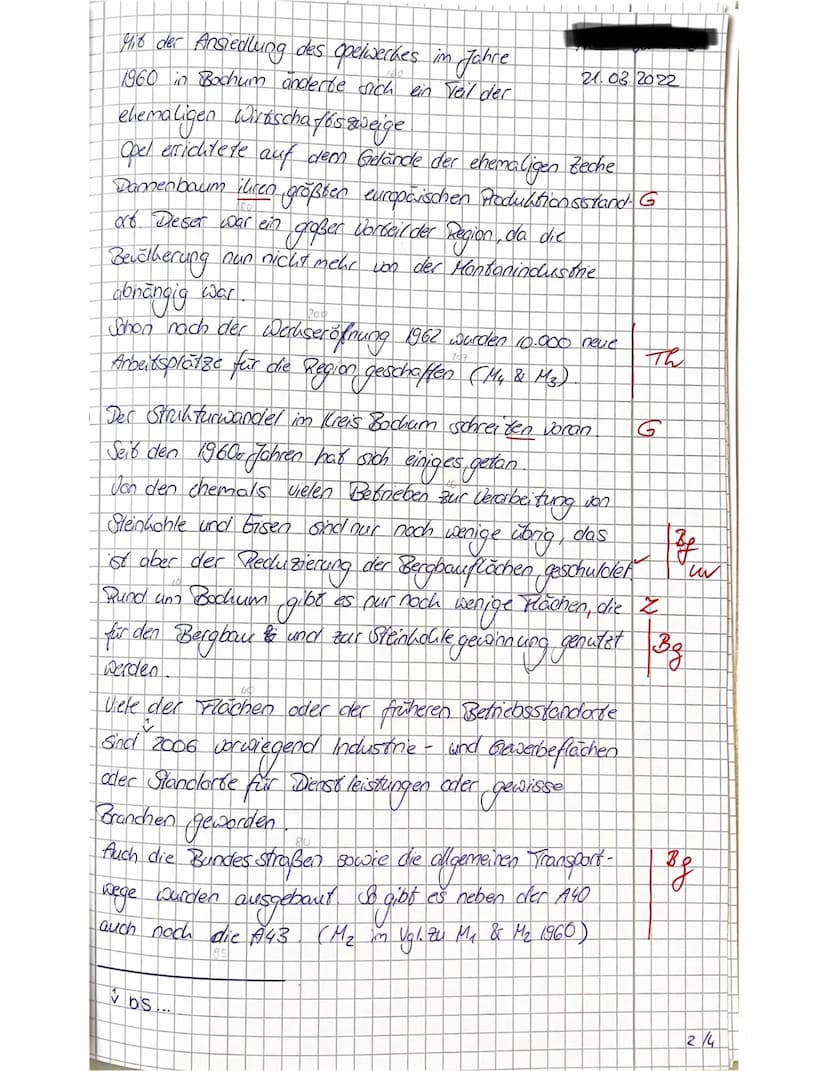 Mit der Ansiedlung des Opelwerkes im Jahre
21.03.2022
1960 in Bochum änderte sich ein Teil der
ehemaligen Wirtschaftszweige.
Opel errichtete auf dem Gelände der ehemaligen Zeche
Dannenbaum ihren größten europäischen Produktionsstand- G
ort. Dieser war ein großer Vorteil der Region, da die
Bevölkerung nun nicht mehr von der Montanindustrie
abhängig war.
200
Schon nach der Werkseröfnung 1962 wurden 10.000 neue
Arbeitsplätze für die Region geschaffen (M4 & M3). Th
Der Strukturwandel im Kreis Bochum schreiten voran. G
Seit den 1960er Jahren hat sich einiges getan.
Von den ehemals vielen Betrieben zur Verarbeitung von
Steinkohle und Eisen sind nur noch wenige übrig, das Bg
ist aber der Reduzierung der Bergbauflächen geschuldet.
Rund um Bochum gibt es nur noch wenige Flächen, die Z
für den Bergbau und zur Steinkohlegewinnung genutzt Bg
werden.
Viele der Flächen oder der früheren Betriebsstandorte
sind 2006 vorwiegend Industrie- und Gewerbeflächen
oder Standorte für Dienstleistungen oder gewisse
Branchen geworden.
Auch die Bundesstraßen sowie die allgemeinen Transport- Bg
wege wurden ausgebaut. So gibt es neben der A40
auch noch die A43. (M2 im Vgl. zu M1 & M2 1960)
95
bs...
2/4